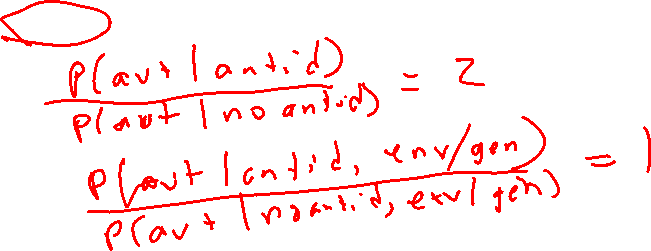 P(aut | antid)
P(aut | no antid) = 2
P(aut | antid, env/gen)
P(aut | no antid, env/gen) = 1